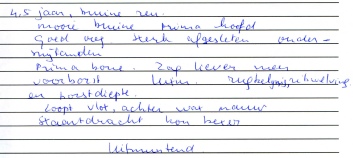 4,5 jaar, bruine reu.
mooie bruine prima hoofd
Goed oog sterk afgesleten onder-
snijtanden
Prima bone. Zag liever meer
voorborst ruglengte, ribwelving
en borstdiepte.
Loopt vlot, achter wat nauw
staartdracht kon beter
Uitmuntend.